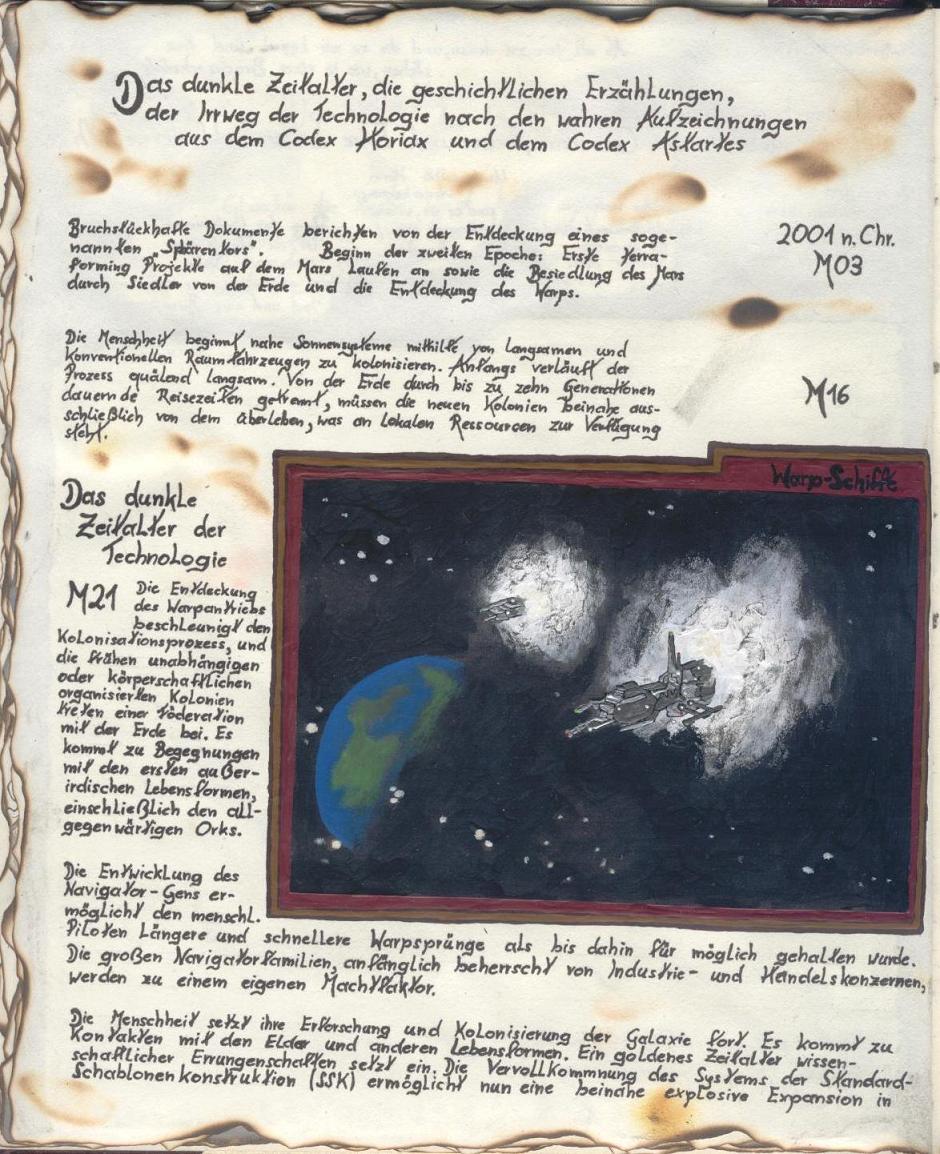 Das dunkle Zeitalter, die geschichtlichen Erzählungen,
der Irrweg der Technologie nach den wahren Aufzeichnungen
aus dem Codex Horiax und dem Codex Astartes
Bruchstückhafte Dokumente berichten von der Entdeckung eines soge-
nannten „Sphärentors". Beginn der zweiten Epoche: Erste Terra-
forming Projekte auf dem Mars Laufen an sowie die Besiedlung des Mars
durch Siedler von der Erde und die Entdeckung des Warps.
2001 n. Chr.
M03
Die Menschheit beginnt nahe Sonnensysteme mithilfe von langsamen und
konventionellen Raumfahrzeugen zu kolonisieren. Anfangs verläuft der
Prozess quälend langsam. Von der Erde durch bis zu zehn Generationen
dauernde Reisezeiten getrennt, müssen die neuen Kolonien beinahe aus-
schließlich von dem überleben, was an lokalen Ressourcen zur Verfügung
steht.
M16
Das dunkle
Zeitalter der
Technologie
M21 Die Entdeckung
des Warpantriebs
beschleunigt den
Kolonisationsprozess, und
die frühen unabhängigen
oder körperschaftlichen
organisierten Kolonien
treten einer Föderation
mit der Erde bei. Es
kommt zu Begegnungen
mit den ersten außer-
irdischen Lebensformen,
einschließlich den all-
gegenwärtigen Orks.
Warp-Schiffe
Die Entwicklung des
Navigator-Gens er-
möglicht den menschl.
Piloten Längere und schnellere Warpsprünge als bis dahin für möglich gehalten wurde.
Die großen Navigatorfamilien, anfänglich beherrscht von Industrie- und Handelskonzernen,
werden zu einem eigenen Machtfaktor.
Die Menschheit setzt ihre Erforschung und Kolonisierung der Galaxie fort. Es kommt zu
Kontakten mit den Eldar und anderen Lebensformen. Ein goldenes Zeitalter wissen-
schaftlicher Errungenschaften setzt ein. Die Vervollkommnung des Systems der Standard-
Schablonenkonstruktion (SSK) ermöglicht nun eine beinahe explosive Expansion in